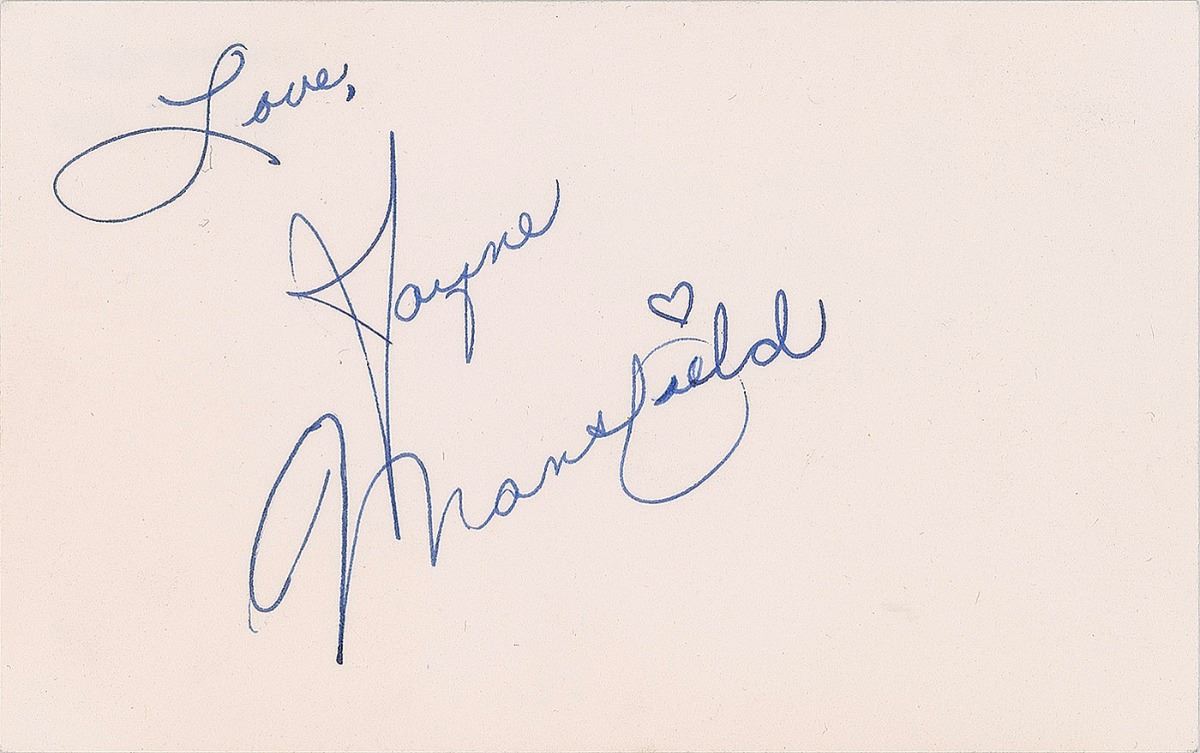 Love,
Jayne
Mansfield